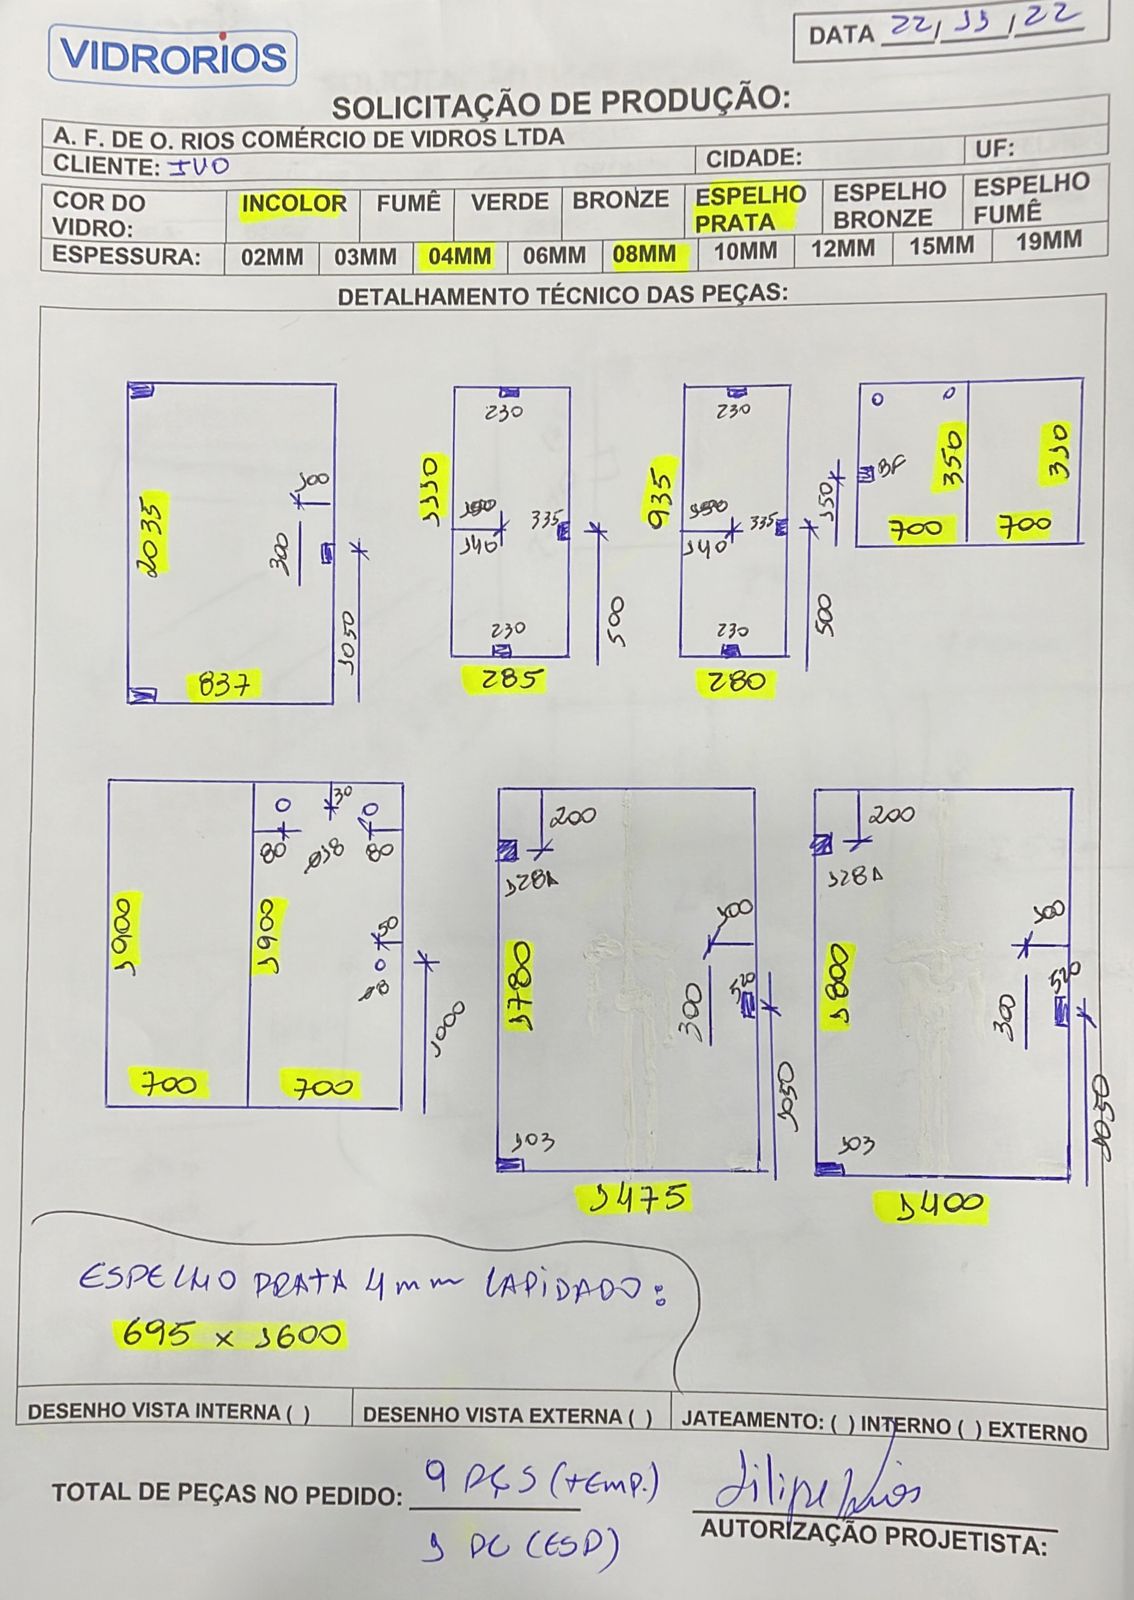 VIDRORIOS
DATA 22/11/22
SOLICITAÇÃO DE PRODUÇÃO:
A. F. DE O. RIOS COMÉRCIO DE VIDROS LTDA
CLIENTE: IVO CIDADE: UF:
COR DO VIDRO: INCOLOR FUMÊ VERDE BRONZE ESPELHO PRATA ESPELHO BRONZE ESPELHO FUMÊ
ESPESSURA: 02MM 03MM 04MM 06MM 08MM 10MM 12MM 15MM 19MM
DETALHAMENTO TÉCNICO DAS PEÇAS:
2035 100 300 1050 837
230 1110 140 335 230 500 285
230 935 140 335 230 500 280
BF 150 350 330 700 700
1900 700
80 30 Ø18 80 1900 50 Ø8 1000 700
200 128A 1780 100 300 520 1050 103 1475
200 128A 1800 100 300 520 1050 103 1400
ESPELHO PRATA 4mm LAPIDADO:
695 x 1600
DESENHO VISTA INTERNA ( ) DESENHO VISTA EXTERNA ( ) JATEAMENTO: ( ) INTERNO ( ) EXTERNO
TOTAL DE PEÇAS NO PEDIDO: 9 PÇS (TEMP.)
1 PC (ESP)
Filipe Rios
AUTORIZAÇÃO PROJETISTA: